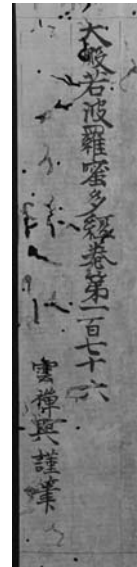 大般若波羅蜜多經卷第一百七十六
雲禪興謹筆